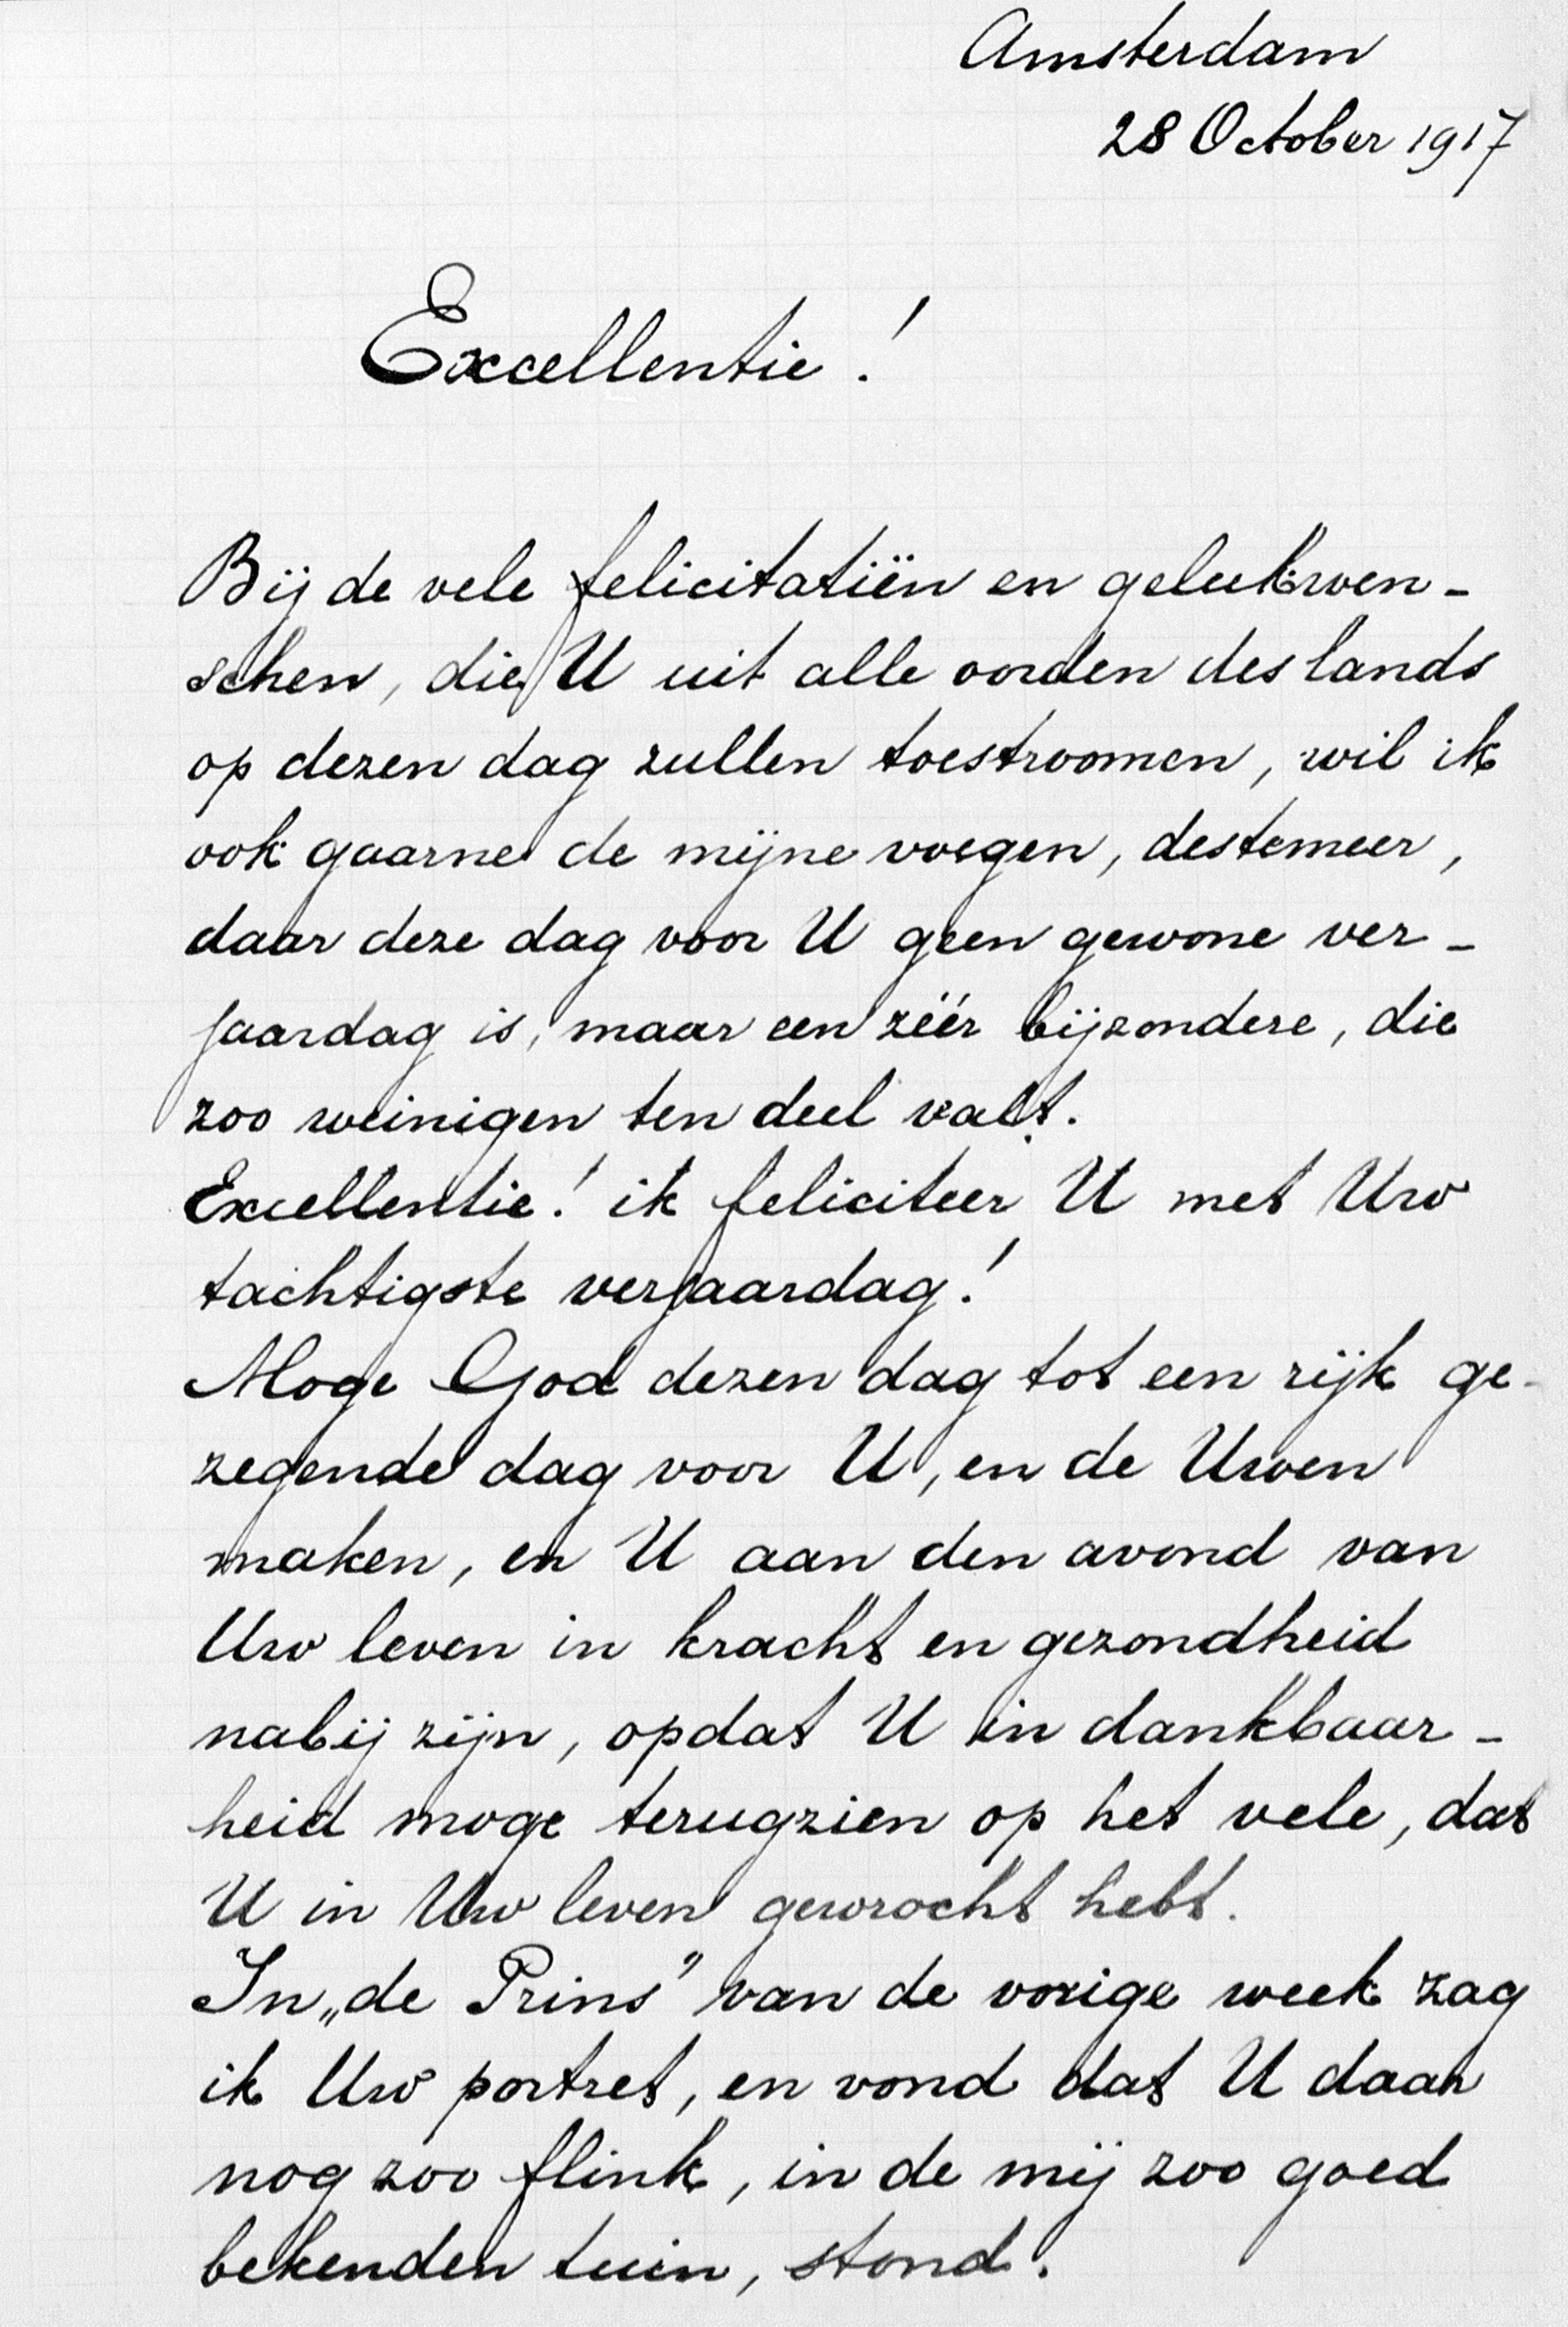 Amsterdam
28 October 1917
Excellentie!
Bij de vele felicitatiën en gelukwen-
schen, die U uit alle oorden des lands
op dezen dag zullen toestroomen, wil ik
ook gaarne de mijne voegen, destemeer,
daar deze dag voor U geen gewone ver-
jaardag is, maar een zéér bijzondere, die
zoo weinigen ten deel valt.
Excellentie! ik feliciteer U met Uw
tachtigste verjaardag!
Moge God dezen dag tot een rijk ge-
zegende dag voor U, en de Uwen
maken, en U aan den avond van
Uw leven in kracht en gezondheid
nabij zijn, opdat U in dankbaar-
heid moge terugzien op het vele, dat
U in Uw leven gewrocht hebt.
In „de Prins" van de vorige week zag
ik Uw portret, en vond dat U daar
nog zoo flink, in de mij zoo goed
bekenden tuin, stond.